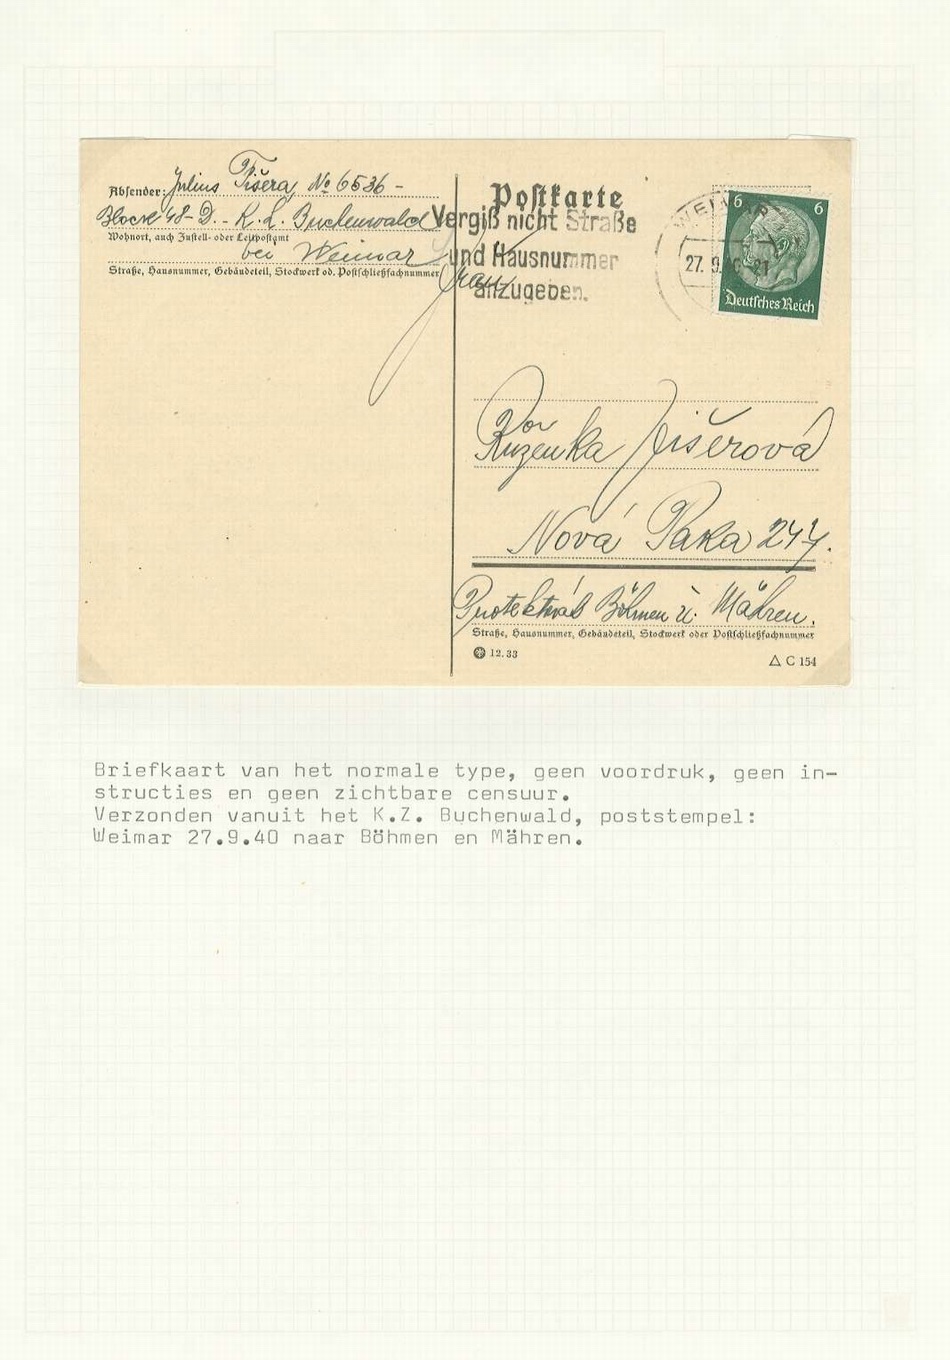 Absender: Julius Fišera, No 6536 -
Block 48-D. - K. L. Buchenwald
Wohnort, auch Zustell- oder Leitpostamt
bei Weimar
Straße, Hausnummer, Gebäudeteil, Stockwerk od. Postschließfachnummer
Postkarte
Vergiß nicht Straße
und Hausnummer
anzugeben.
WEIMAR
27. 9. 40 - 21
6 6
Deutsches Reich
Frau
Růzenka Fišerová
Nová Paka 247.
Protektorát Böhmen ü. Mähren.
Straße, Hausnummer, Gebäudeteil, Stockwerk oder Postschließfachnummer
12. 33
C 154
Briefkaart van het normale type, geen voordruk, geen in-
structies en geen zichtbare censuur.
Verzonden vanuit het K.Z. Buchenwald, poststempel:
Weimar 27.9.40 naar Böhmen en Mähren.